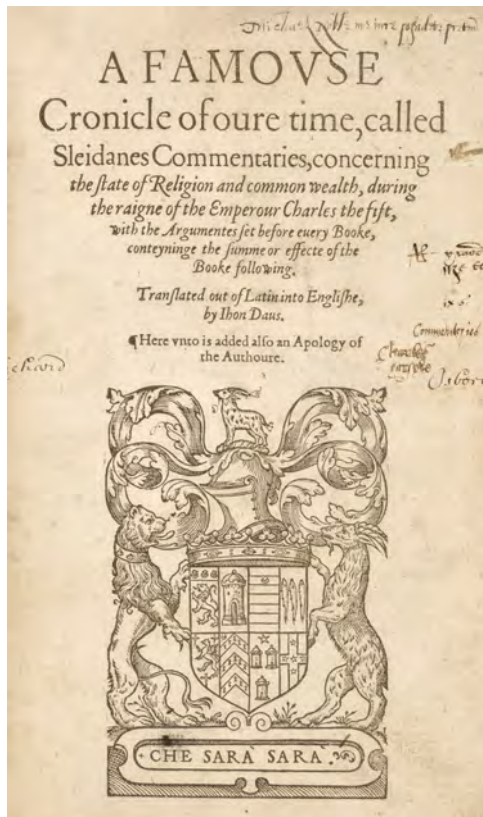 Michael
A FAMOVSE
Cronicle of oure time, called
Sleidanes Commentaries, concerning
the state of Religion and common wealth, during
the raigne of the Emperour Charles the fift,
with the Argumentes set before euery Booke,
conteyninge the summe or effecte of the
Booke following.
Translated out of Latin into Englishe,
by Ihon Daus.
¶Here vnto is added also an Apology of
the Authoure.
CHE SARA SARA